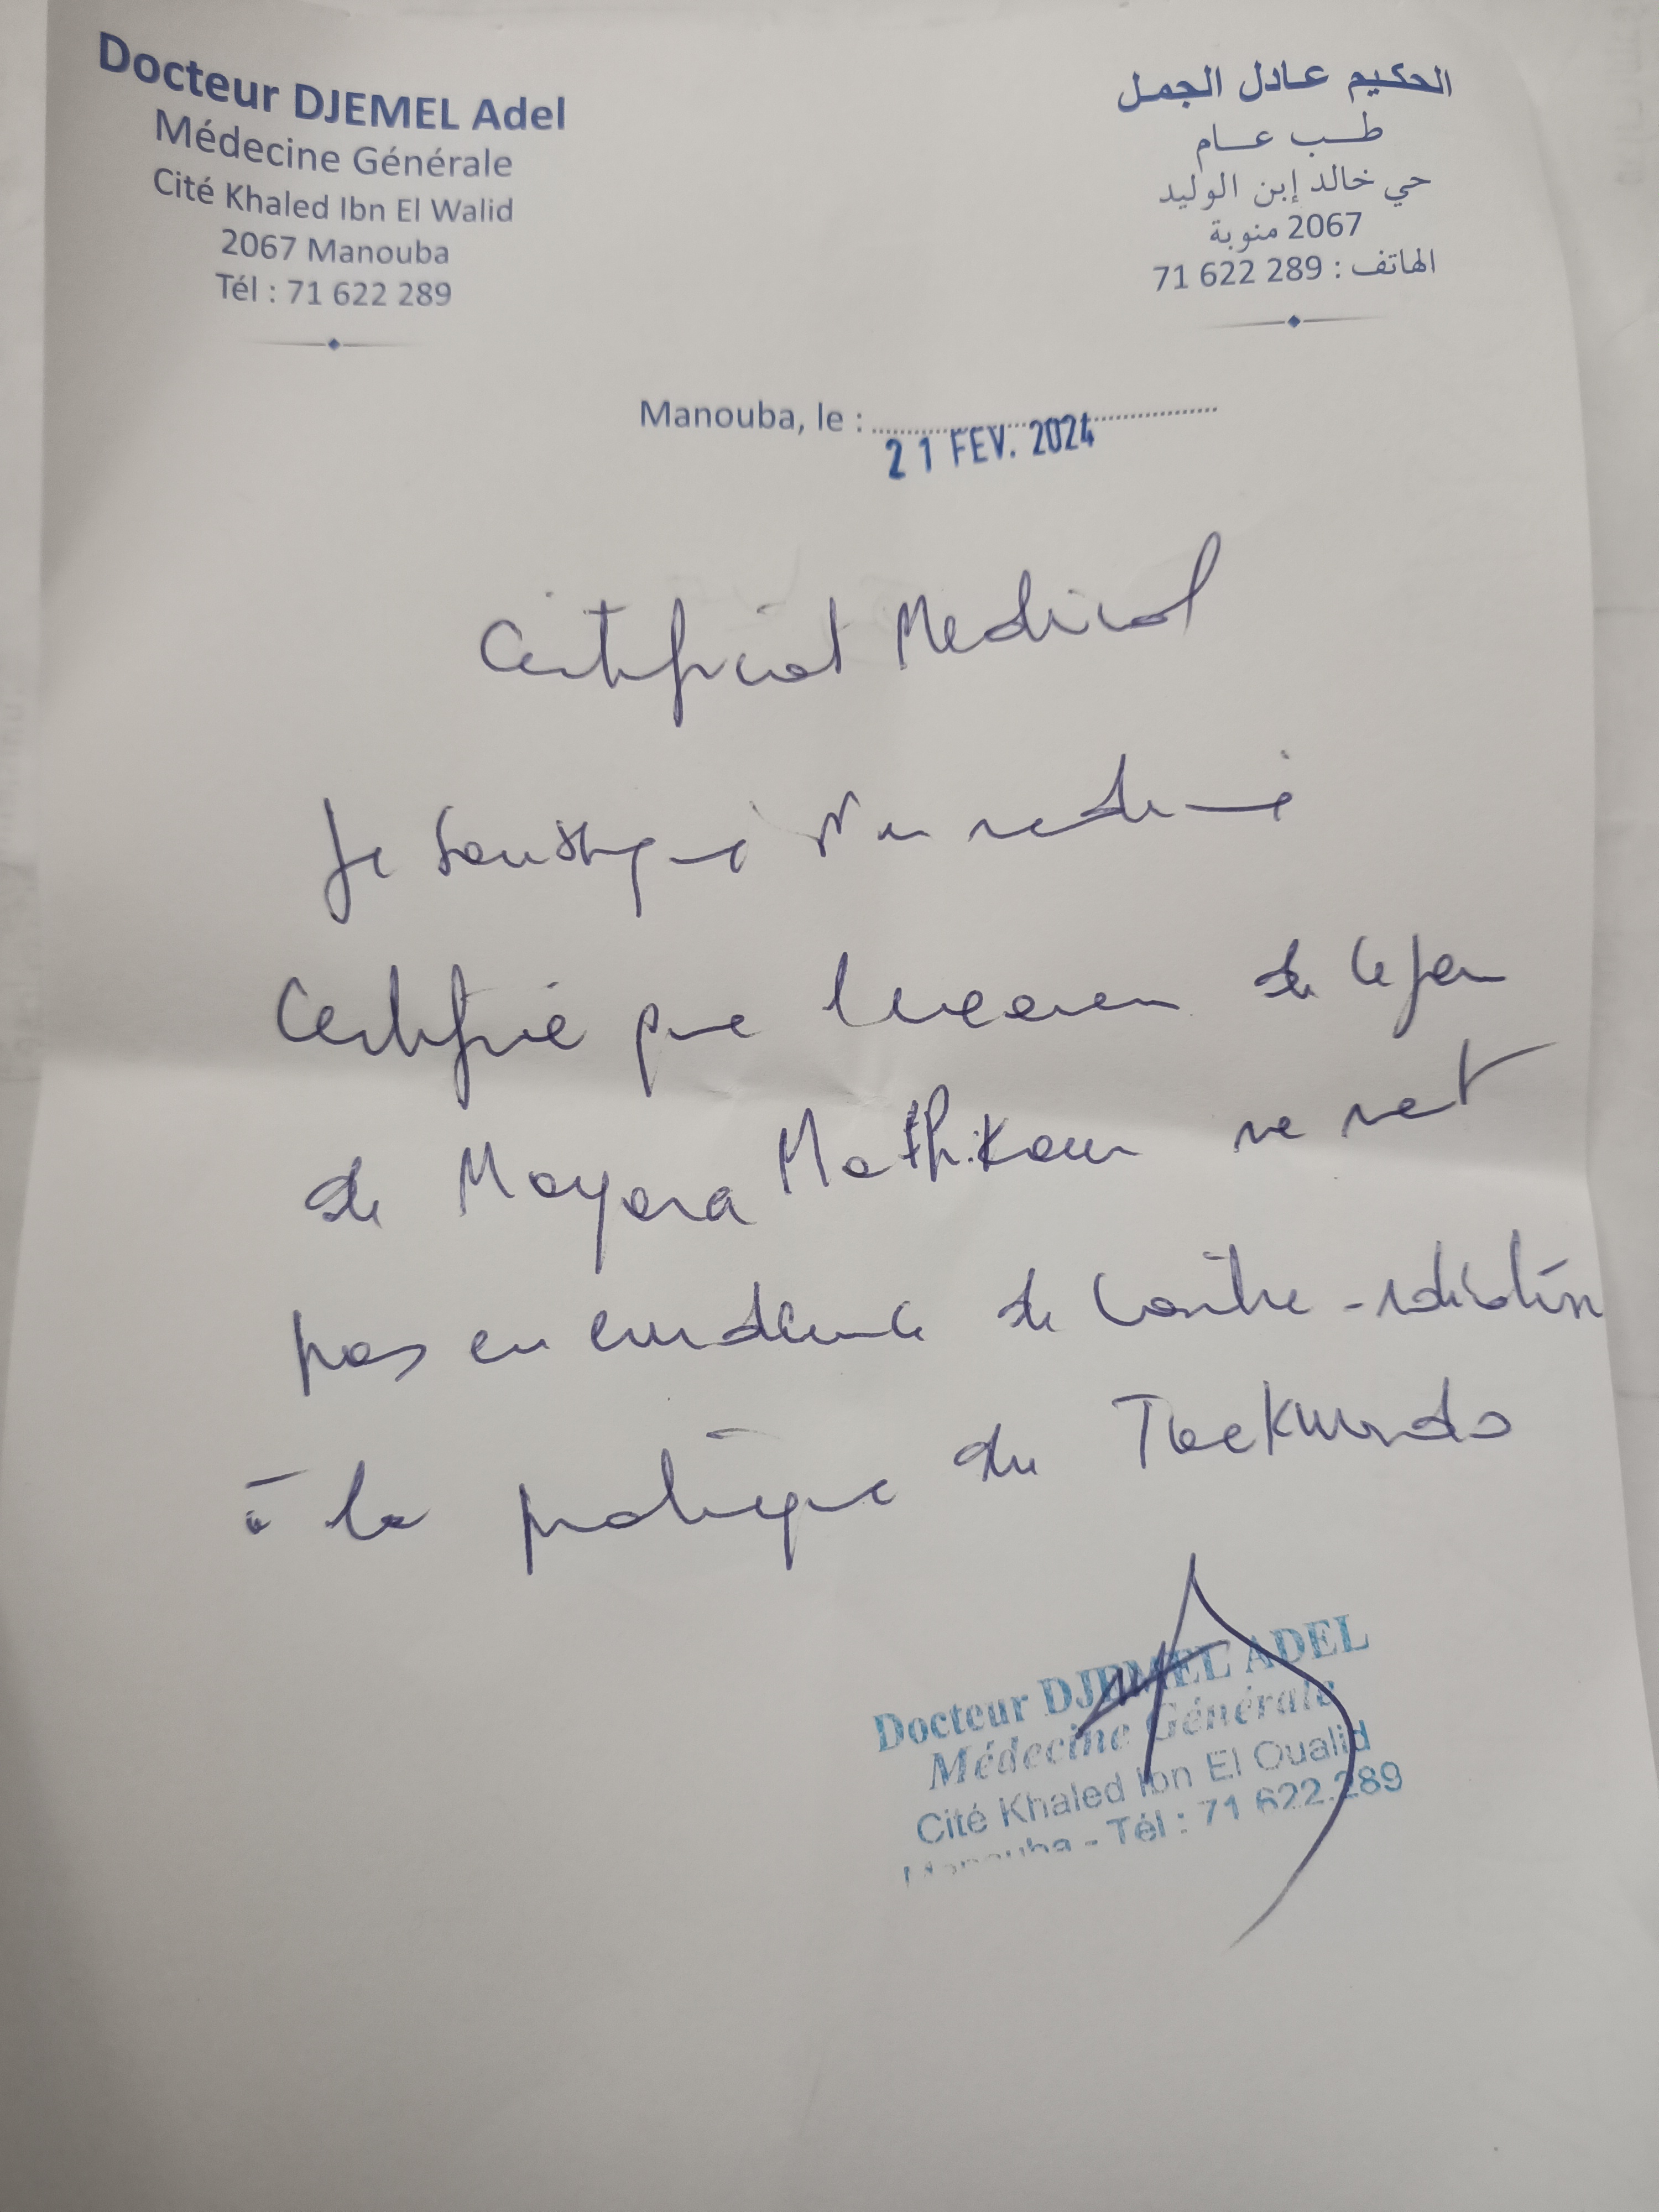 Docteur DJEMEL Adel
Médecine Générale
Cité Khaled Ibn El Walid
2067 Manouba
Tél : 71 622 289
الحكيم عادل الجمل
طب عام
حي خالد إبن الوليد
2067 منوبة
الهاتف : 71 622 289
Manouba, le :
21 FEV. 2024
Certificat Medical
Je soussigné
Certifie que l'examen de ce jour
de Mayara ne met
pas en evidence de contre-indication
à la pratique du Taekwondo
Docteur DJEMEL ADEL
Médecine Générale
Cité Khaled Ibn El Oualid
Manouba - Tél : 71 622.289